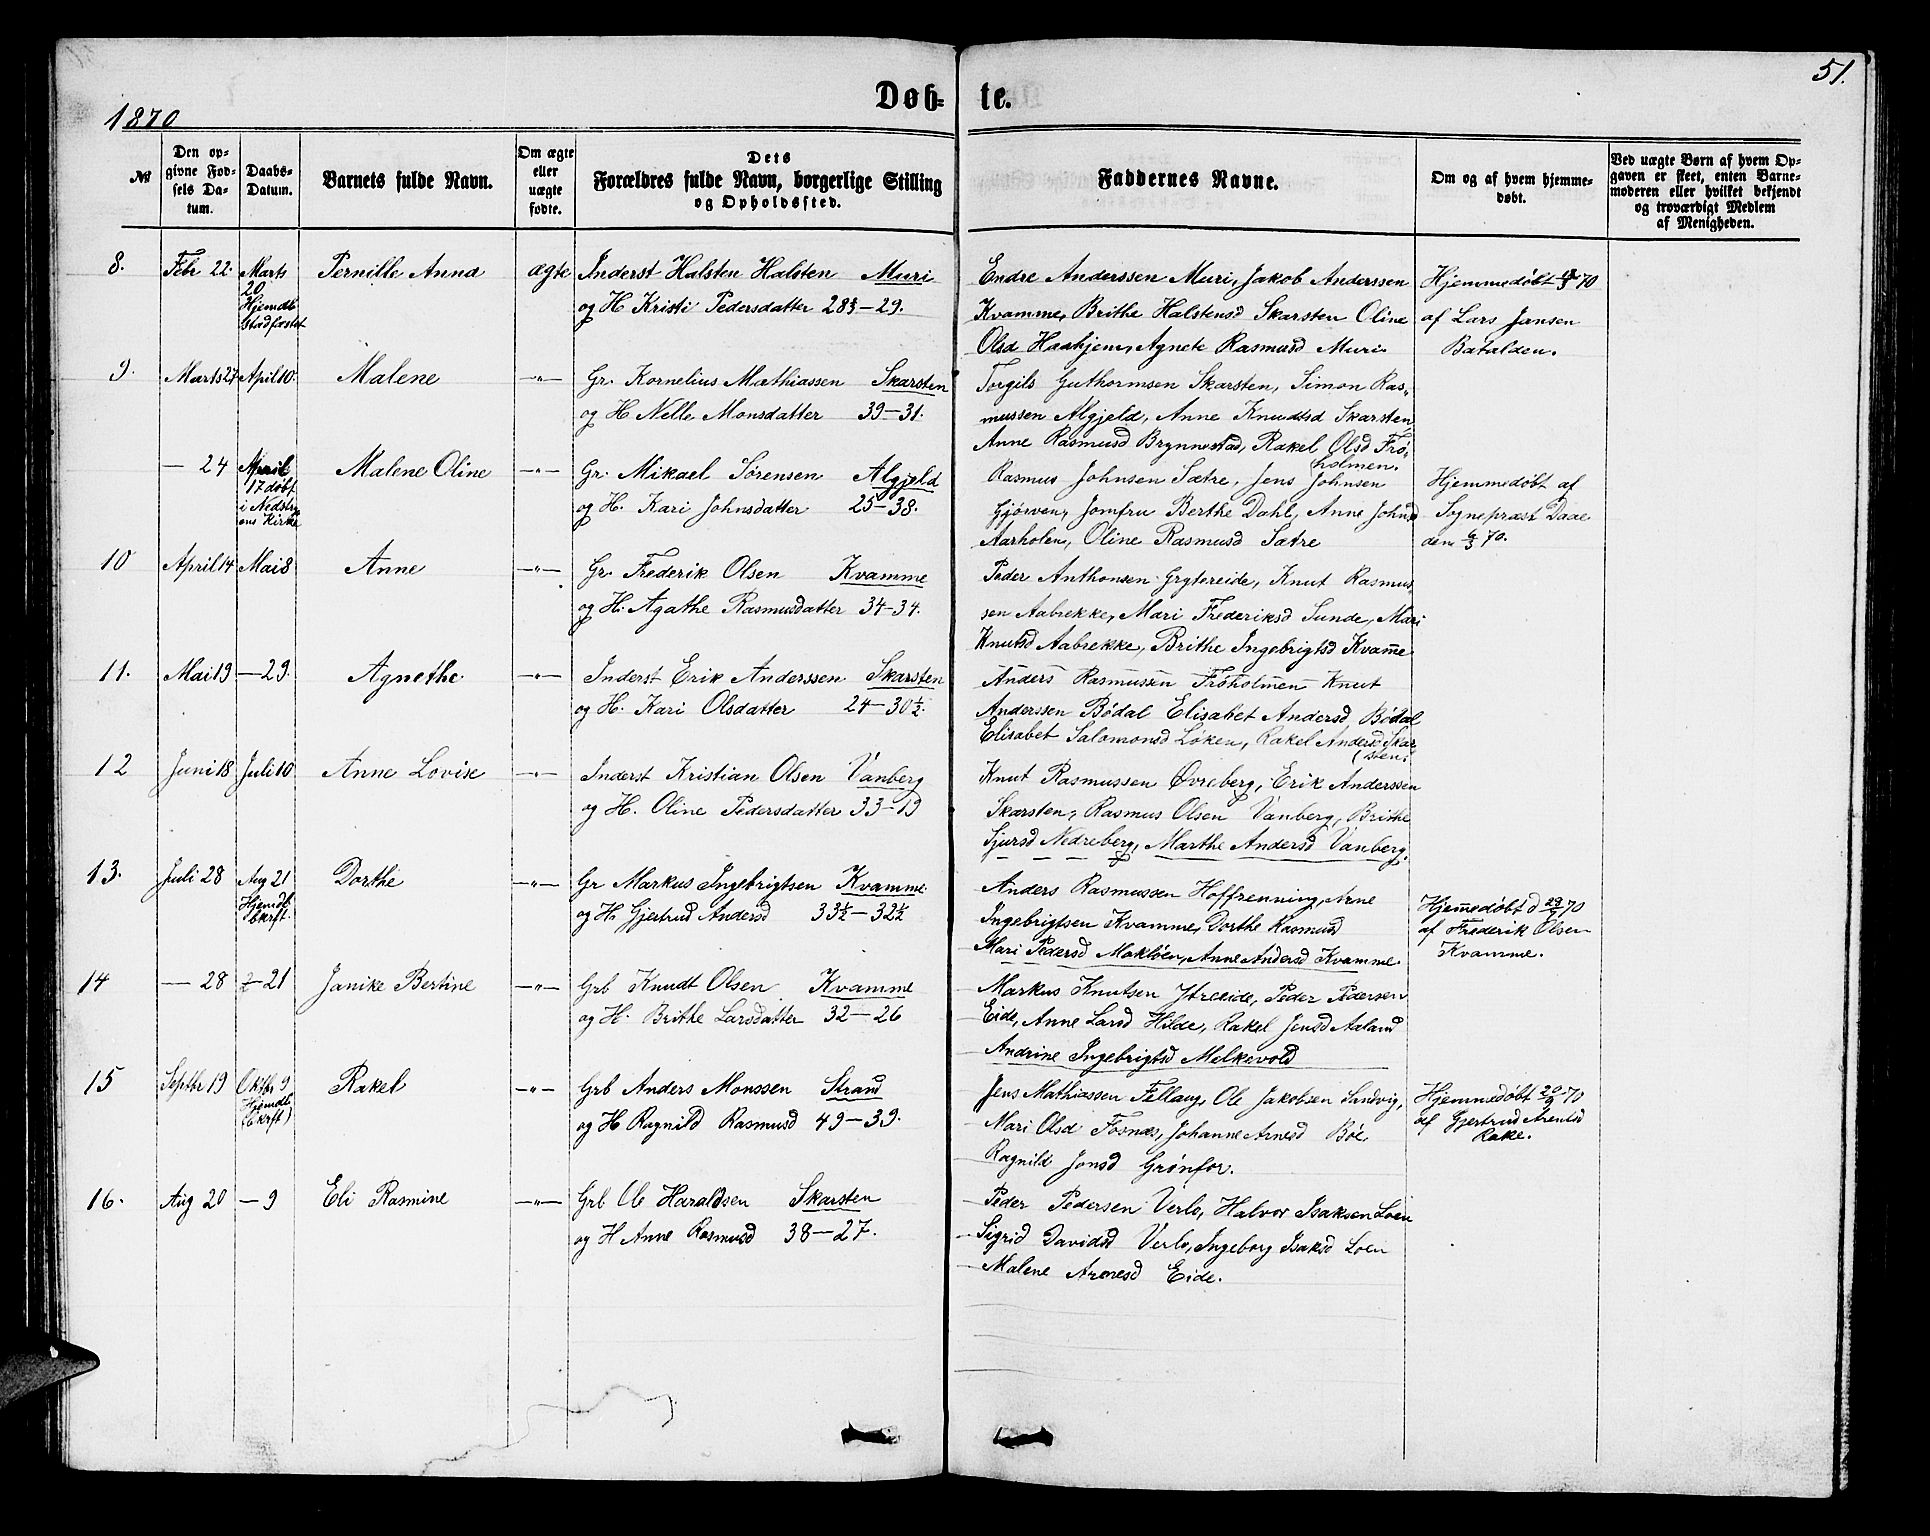 51.
1870
Døb- te.
№
Den opgivne Fødsels Datum.
Daabs-Datum.
Barnets fulde Navn.
Om ægte eller uægte fødte.
Dets Forældres fulde Navn, borgerlige Stilling og Opholdssted.
Faddernes Navne.
Om og af hvem hjemmedøbt.
Ved uægte Børn af hvem Opgaven er skeet, enten Barnemoderen eller hvilket bekjendt og troværdigt Medlem af Menigheden.
8. Febr 22. Marts 20 Hjemdb Stadfæstet Pernille Anna ægte Inderst Halsten Halsten Muri
og H Kristi Pedersdatter 28¾–29.
Endre Anderssen Muri, Jakob Anderssen
Kvamme, Brithe Halstensd Skarsten Oline
Olsd Haahjem, Agnete Rasmusd Muri
Hjemmedøbt 70
af Lars Jansen
Batalden.
9. Marts 27 April 10. Malene –"– Gr. Kornelius Mathiassen Skarsten
og H Nelle Monsdatter 39–31.
Torgils Guthormsen Skarsten, Simon Ras-
mussen Algjeld, Anne Knudtsd Skarsten,
Anne Rasmusd Brynnestad, Rakel Olsd Frø-
holmen.
— 24 April 17 døbt i Nedstryens Kirke Malene Oline –"– Gr. Mikael Sørensen Algjeld
og H. Kari Johnsdatter 25–38.
Rasmus Johnsen Sætre, Jens Johnsen
Gjørven, Jomfru Berthe Dahl, Anne Johnsd
Aarholen, Oline Rasmusd Sætre
Hjemmedøbt af
Sognepræst Daae
den 6/3 70.
10 April 14 Mai 8 Anne –"– Gr. Frederik Olsen Kvamme
og H. Agathe Rasmusdatter 34–34.
Peder Anthonsen Grytereide, Knut Rasmus-
sen Aabrekke, Mari Frederiksd Sunde, Mari
Knutsd Aabrekke, Brithe Ingebrigtsd Kvam̄e
11. Mai 19 — 29. Agnethe –"– Inderst Erik Anderssen Skarsten
og H. Kari Olsdatter 24–30½.
Anders Rasmussen Frøholmen Knut
Anderssen Bødal Elisabet Andersd Bødal
Elisabet Salomonsd Løken, Rakel Andersd Skar-
sten.
12 Juni 18 Juli 10 Anne Lovise –"– Inderst Kristian Olsen Vanberg
og H. Oline Pedersdatter 33–19
Knut Rasmussen Øvreberg, Erik Anderssen
Skarsten, Rasmus Olsen Vanberg, Brithe
Sjursd Nedreberg, Marthe Andersd Vanberg.
13. Juli 28 Aug 21 Hjemdb bkrft. Dorthe –"– Gr Markus Ingebrigtsen Kvamme
og H. Gjertrud Andersd 33½–32½
Anders Rasmussen Hoffrenning, Arne
Ingebrigtsen Kvamme, Dorthe Rasmusd
Mari Pedersd Mokløen, Anne Andersd Kvamme.
Hjem̄edøbt d 29/7 70
af Frederik Olsen
Kvamme.
14 — 28 — 21 Janike Bertine –"– Grb Knudt Olsen Kvamme
og H. Brithe Larsdatter 32–26
Markus Knutsen Ytreeide, Peder Pedersen
Eide, Anne Larsd Hilde, Rakel Jensd Aaland
Andrine Ingebrigtsd Melkevold
15 Septbr 19 Oktbr 9 Hjemdb (bkrft) Rakel –"– Grb Anders Monssen Strand
og H Ragnild Rasmusd 49–39.
Jens Mathiassen Fellang, Ole Jakobsen Sandvig,
Mari Olsd Fosnæs, Johanne Arnesd Bøe
Ragnild Jonsd Grønfor.
Hjemmedøbt 20/9 70
af Gjertrud Arentsd
Rake.
16. Aug 20 — 9 Eli Rasmine –"– Grb Ole Haraldsen Skarsten
og H Anne Rasmusd 38–27.
Peder Pedersen Verlo, Halvor Isaksen Loen
Sigrid Davidsd Verlo, Ingeborg Isaksd Loen
Malene Arnesd Eide.